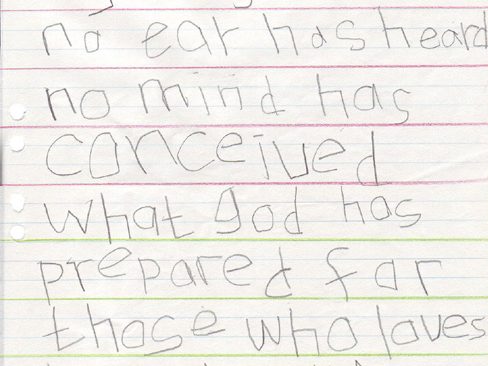 no ear has heard
no mind has
conceived
what god has
prepared for
those who loves